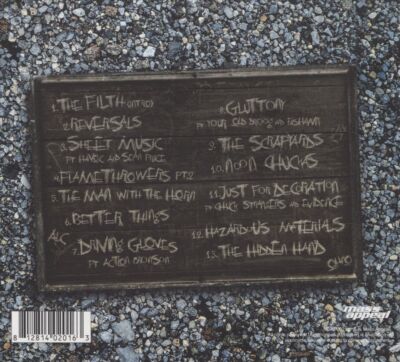 1. THE FILTH (INTRO)
2. REVERSALS
3. SHEET MUSIC
FT HAVOC AND SEAN PRICE
4. FLAMETHROWERS PT.2
5. THE MAN WITH THE HORN
6. BETTER THINGS
ALC
7. DRIVING GLOVES
FT ACTION BRONSON
8. GLUTTONY
FT YOUR OLD DROOG AND
9. THE SCRAPYARDS
10. NOON CHUCKS
11. JUST FOR DECORATION
FT CHUCK STRANGERS AND EVIDENCE
12. HAZARDOUS MATERIALS
13. THE HIDDEN HAND
OHNO
mass
appeal
8 12814 02016 3